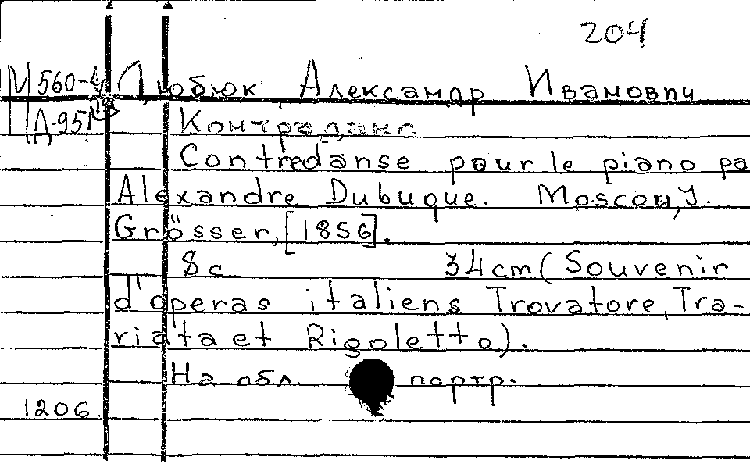 204
М 560-4 Дюбюк Александр Иванович
Д-951 Контраданс
Contredanse pour le piano pa
Alexandre Dubuque. Moscou, J.
Grösser, [1856].
8 с 34 cm (Souvenir
d'operas italiens Trovatore, Tra-
viata et Rigoletto).
На обл. портр.
1206